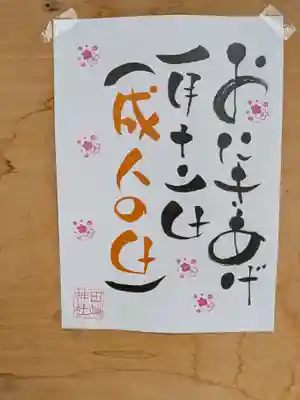 おたきあげ
一月十二日
(成人の日)
神社